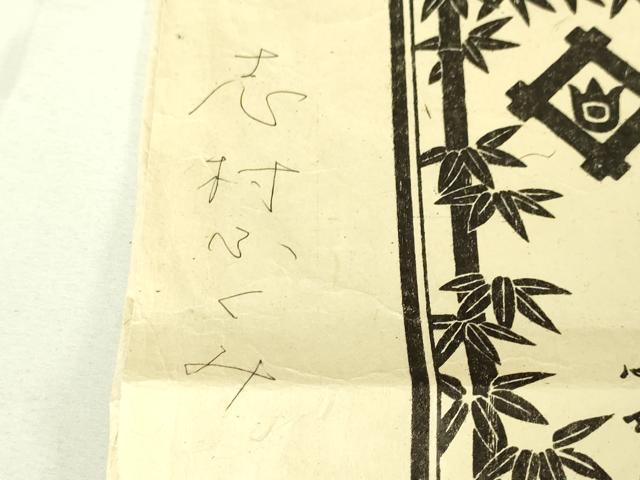 志村ふくみ